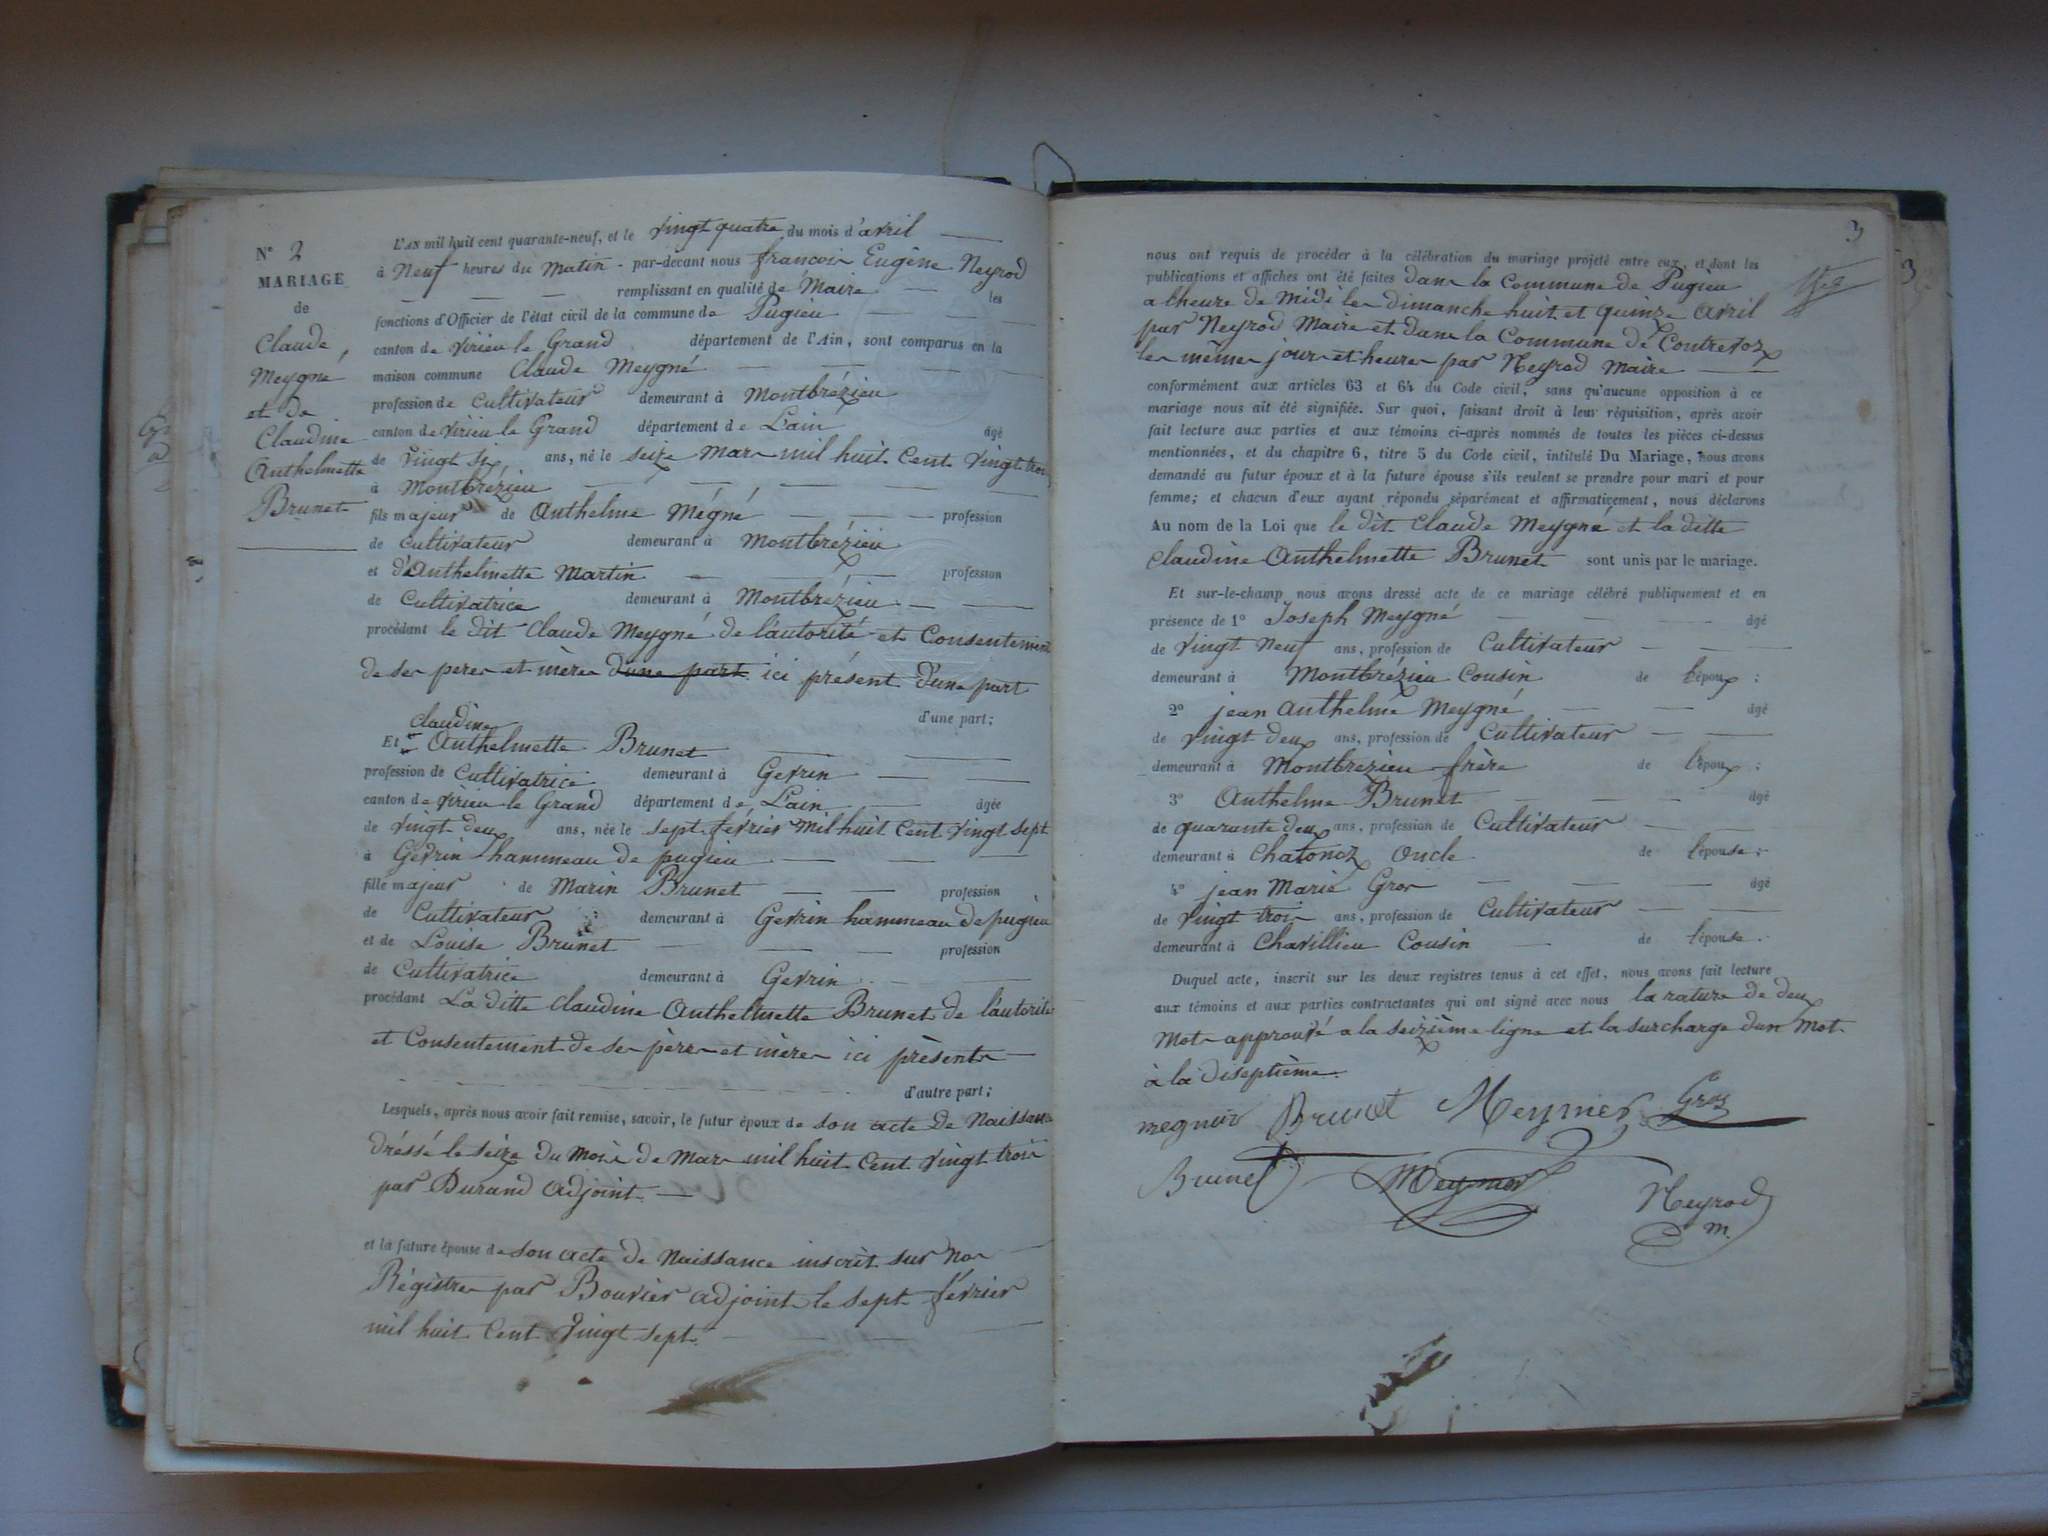 N° 2
MARIAGE
de
Claude
Meygné
et de
Claudine
Anthelmette
Brunet
L'AN mil huit cent quarante-neuf, et le vingt quatre du mois d'avril
à Neuf heures du Matin par-devant nous françois Eugène Neyrod
remplissant en qualité de Maire les
fonctions d'Officier de l'état civil de la commune de Pugieu
canton de Virieu le Grand département de l'Ain, sont comparus en la
maison commune Claude Meygné
profession de Cultivateur demeurant à Montbrézieu
canton de Virieu le Grand département de L'ain âgé
de Vingt Six ans, né le seize Mars mil huit Cent Vingt trois
à Montbrézieu
fils majeur de Anthelme Mégné profession
de Cultivateur demeurant à Montbrézieu
et d'Anthelmette Martin profession
de Cultivatrice demeurant à Montbrézieu
procédant le dit Claude Meygné de l'autorité et Consentement
de ses peres et mères d'une part ici présent d'une part
d'une part;
Claudine
Et Anthelmette Brunet
profession de Cultivatrice demeurant à Gevrin
canton de Virieu le Grand département de L'ain âgée
de Vingt deux ans, née le sept février Mil huit Cent Vingt Sept
à Gevrin hammeau de pugieu
fille majeur de Marin Brunet profession
de Cultivateur demeurant à Gevrin hammeau de pugieu
et de Louise Brunet profession
de Cultivatrice demeurant à Gevrin
procédant La ditte Claudine Anthelmette Brunet de l'autorité
et Consentement de ses pères et mères ici présents
d'autre part;
Lesquels, après nous avoir fait remise, savoir, le futur époux de son acte de Naissance
dréssé le seize du Mois de Mars mil huit Cent Vingt trois
par Durand adjoint
et la future épouse de son acte de Naissance inscrit sur nos
Régistres par Bouvier adjoint le Sept février
mil huit Cent Vingt sept
3
nous ont requis de procéder à la célébration du mariage projeté entre eux, et dont les
publications et affiches ont été faites dans la Commune de Pugieu
a l'heure de Midi les dimanche huit et quinze avril
par Neyrod Maire et dans la Commune de Contrevoz
les mêmes jours et heures par Neyrod Maire
conformément aux articles 63 et 64 du Code civil, sans qu'aucune opposition à ce
mariage nous ait été signifiée. Sur quoi, faisant droit à leur réquisition, après avoir
fait lecture aux parties et aux témoins ci-après nommés de toutes les pièces ci-dessus
mentionnées, et du chapitre 6, titre 5 du Code civil, intitulé Du Mariage, nous avons
demandé au futur époux et à la future épouse s'ils veulent se prendre pour mari et pour
femme; et chacun d'eux ayant répondu séparément et affirmativement, nous déclarons
Au nom de la Loi que le dit Claude Meygné et la ditte
Claudine Anthelmette Brunet sont unis par le mariage.
Et sur-le-champ nous avons dressé acte de ce mariage célébré publiquement et en
présence de 1° Joseph Meygné âgé
de Vingt Neuf ans, profession de Cultivateur
demeurant à Montbrézieu Cousin de l'époux ;
2° jean Anthelme Meygné âgé
de Vingt deux ans, profession de Cultivateur
demeurant à Montbrezieu frère de l'époux ;
3° Anthelme Brunet âgé
de quarante deux ans, profession de Cultivateur
demeurant à Chatonoz Oncle de l'épouse ;
4° jean Marie Gros âgé
de Vingt trois ans, profession de Cultivateur
demeurant à Chavillieu Cousin de l'épouse.
Duquel acte, inscrit sur les deux registres tenus à cet effet, nous avons fait lecture
aux témoins et aux parties contractantes qui ont signé avec nous la rature de deux
Mots approuvé a la seizième ligne et la surcharge d'un Mot
à la diseptième.
megnié Brunet Meynier Gros
Brunet Meynier Neyrod
m.
3